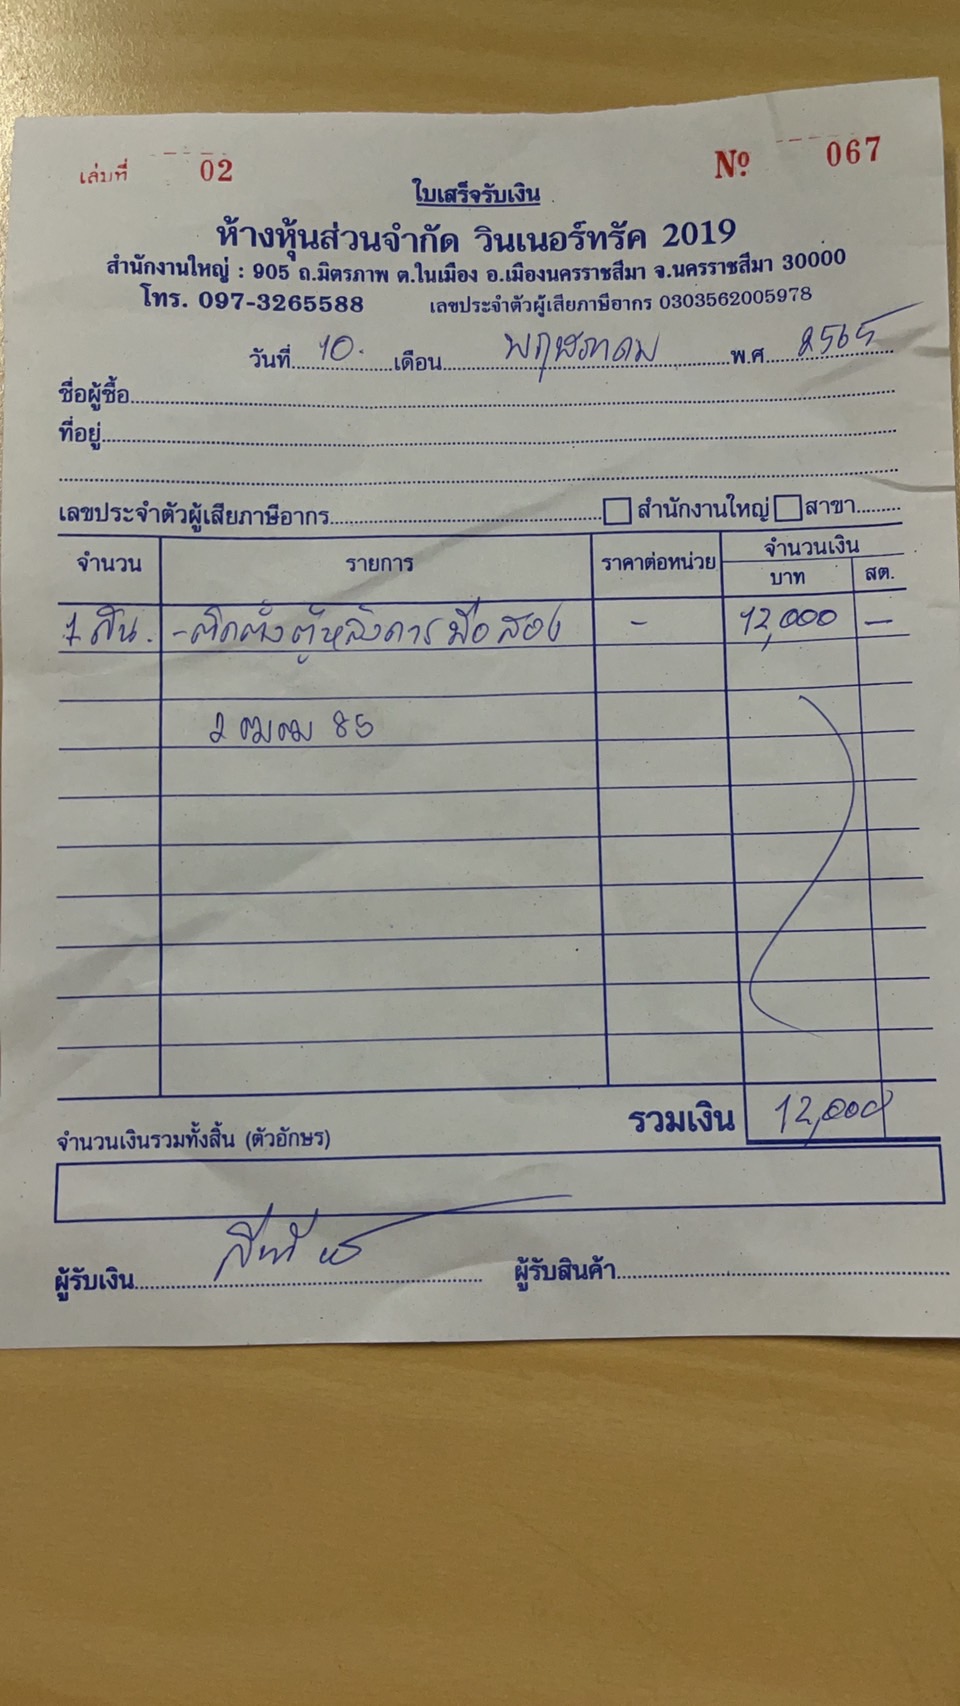 เล่มที่ 02 Nº 067
ใบเสร็จรับเงิน
ห้างหุ้นส่วนจำกัด วินเนอร์ทรัค 2019
สำนักงานใหญ่ : 905 ถ.มิตรภาพ ต.ในเมือง อ.เมืองนครราชสีมา จ.นครราชสีมา 30000
โทร. 097-3265588 เลขประจำตัวผู้เสียภาษีอากร 0303562005978
วันที่ 10. เดือน พฤษภาคม พ.ศ. 2565
ชื่อผู้ซื้อ
ที่อยู่
เลขประจำตัวผู้เสียภาษีอากร สำนักงานใหญ่ สาขา
จำนวน รายการ ราคาต่อหน่วย จำนวนเงิน
บาท สต.
1 คัน. -ติดตั้งตู้หลังคารมือสอง - 12,000 —
2 ฒฒ 85
รวมเงิน 12,000
จำนวนเงินรวมทั้งสิ้น (ตัวอักษร)
ผู้รับเงิน ผู้รับสินค้า